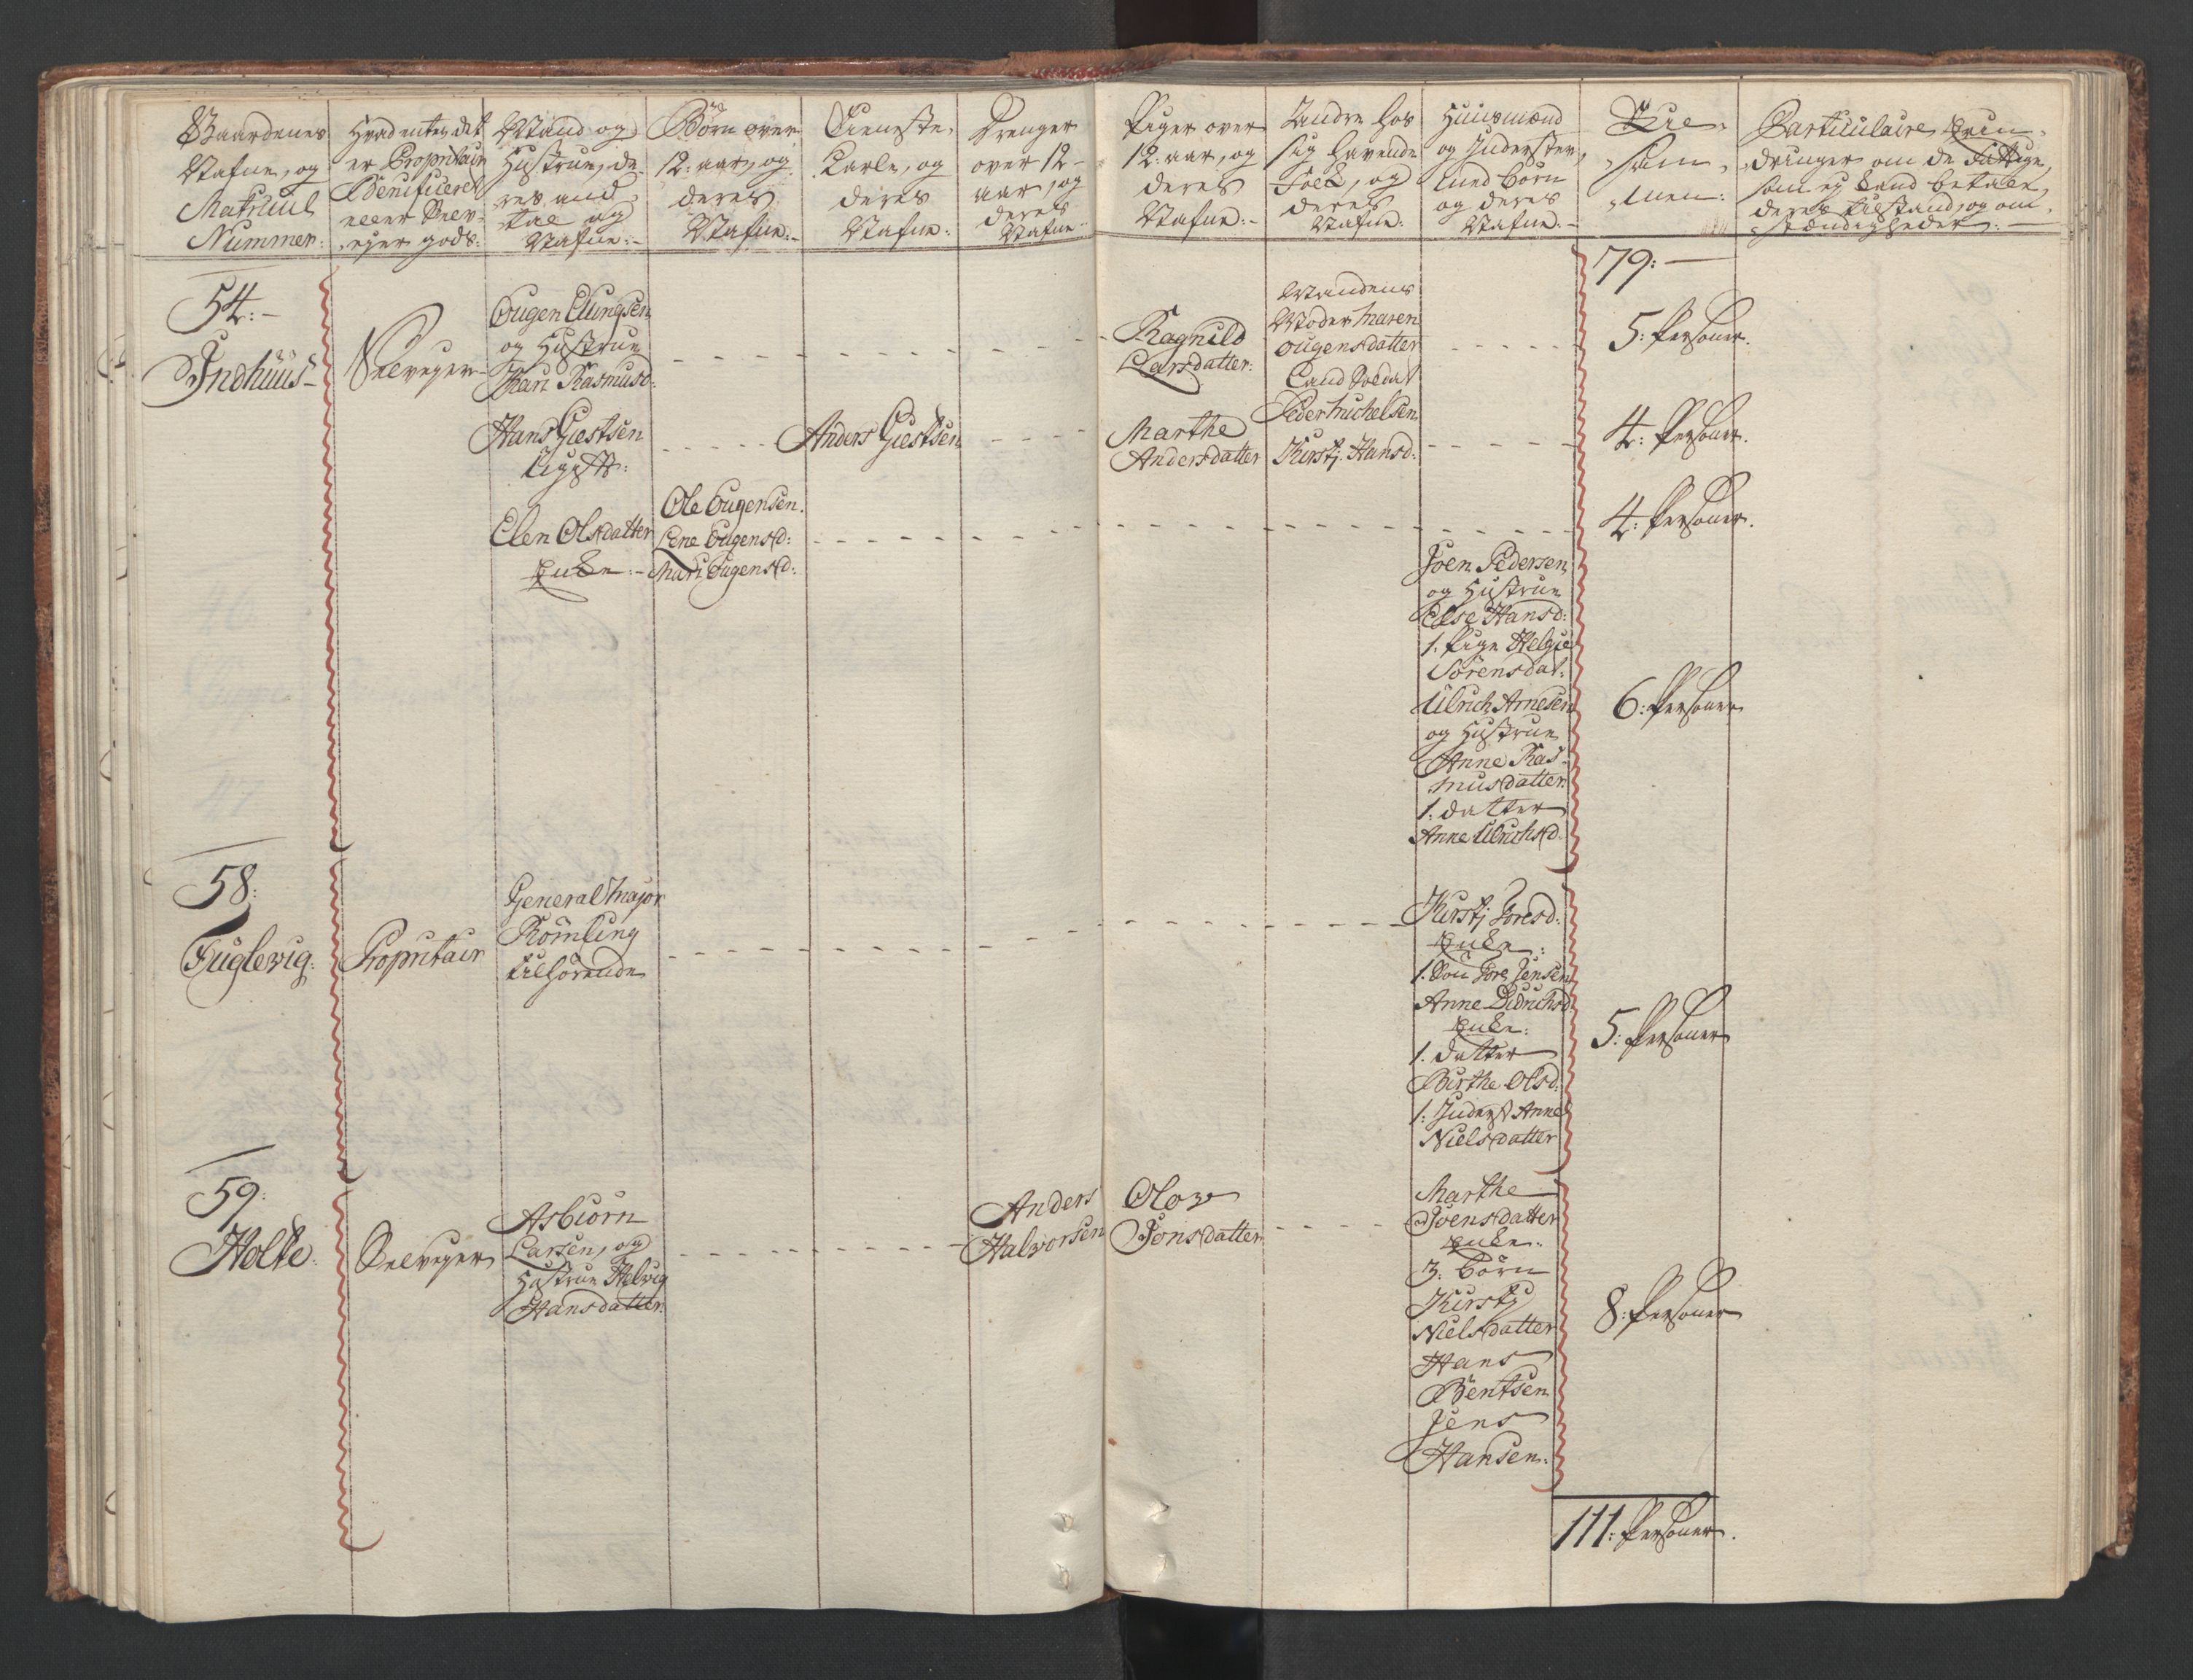 Gaardenes
Nafne, og
Matricul
Nummer:
Hvad enten det
er Propritair
Beneficered
eller Selv-
ejer gods:
Mand og
Hustrue, de-
res and-
tal og
Nafne:-
Børn over
12: aar, og
deres
Nafne:-
Tieneste-
Carle, og
deres
Nafne:
Drenger
over 12-
aar, og
deres
Nafne:
Piger over
12: aar, og
deres
Nafne:-
Andre hos
sig havende
Folk, og
deres
Nafne:
Huusmænd
og Inderster,
med børn
og deres
Nafne:-
Sum-
Particulaire Erin-
dringer om de Fattige,
som ej kand betale,
deres tilstand, og om-
stændigheder:-
79:-
54:-
Indhuus-
Selvejer-
Ougen Ellingsen
og Hustrue
Kari Rasmusd:
Ragnild
Larsdatter:
Mandens
Moder Maren
Ougensdatter
Land Soldat
Peder Michelsen
5: Personer.
Hans Giestsen
Anders Giestsen
Marthe
Andersdatter
Kirstj Hansd:
4: Personer.
Elen Olsdatter
Enke:-
Ole Ougensen.
Lene Ougensd:
Mari Ougensd:
4: Personer.
Joen Pedersen
og Hustrue
Else Hansd:
1. Pige Helgie
Sørensdat:
Ulrich Arnesen
og Hustrue
Anne Ras-
musdatter
1. datter
Anne Ulrichsd:
6: Personer
58:
Fuglevig:
Propritair
General Major
Rømling
tilhørende
Kirstj Joresd:
Enke:
1. Søn Jore Jensen
Anne Didrichsd:
Enke:
1. datter
Birthe Olsd:
1: Inderst Anne
Nielsdatter
5: Personer
59:
Holte:
Selvejer
Asbiørn
Larsen, og
Hustrue Helvig
Hansdatter
Anders
Halvorsen
Olow
Jonsdatter
Marthe
Joensdatter
Enke:
3: børn
Kirstj
Nielsdatter
Hans
Bentsen
Jens
Hansen:
8: Personer
111: Personer.